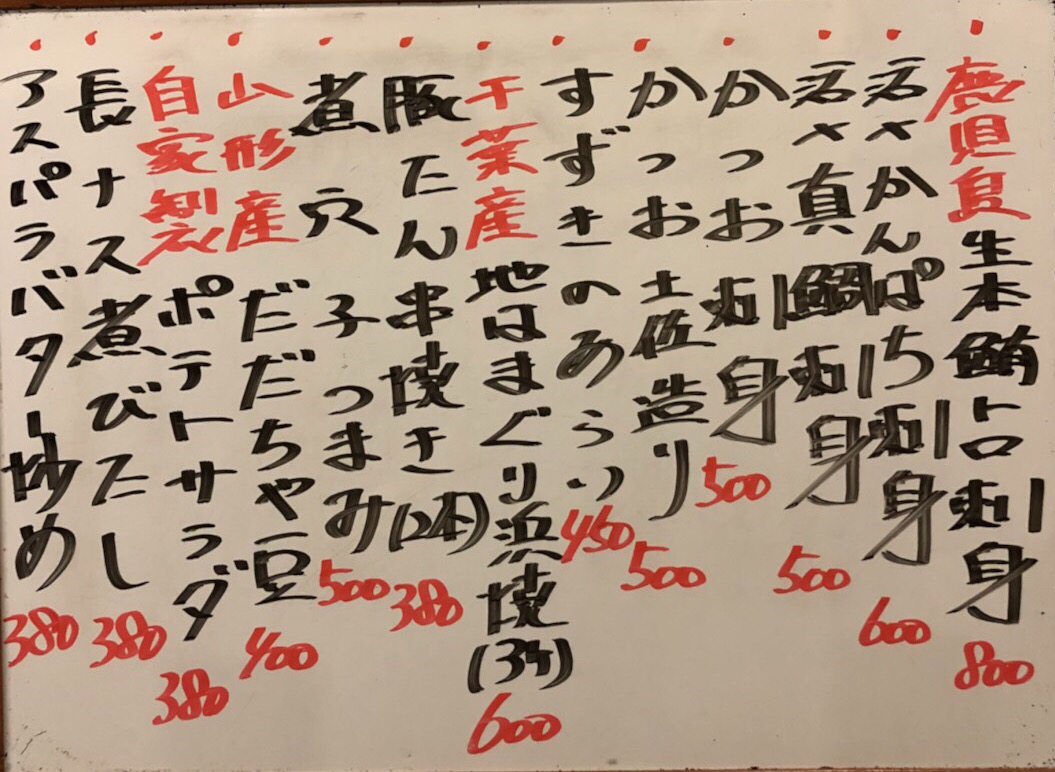 鹿児島生本鮪トロ刺身 800
活〆かんぱち刺身 600
活〆真鯛刺身 500
かつお刺身 500
かつお土佐造り 500
すずきのあらい 450
千葉産地はまぐり浜焼(3ケ) 600
豚たん串焼き(2本) 380
煮穴子つまみ 500
山形産だだちゃ豆 400
自家製ポテトサラダ 380
長ナス煮びたし 380
アスパラバター炒め 380